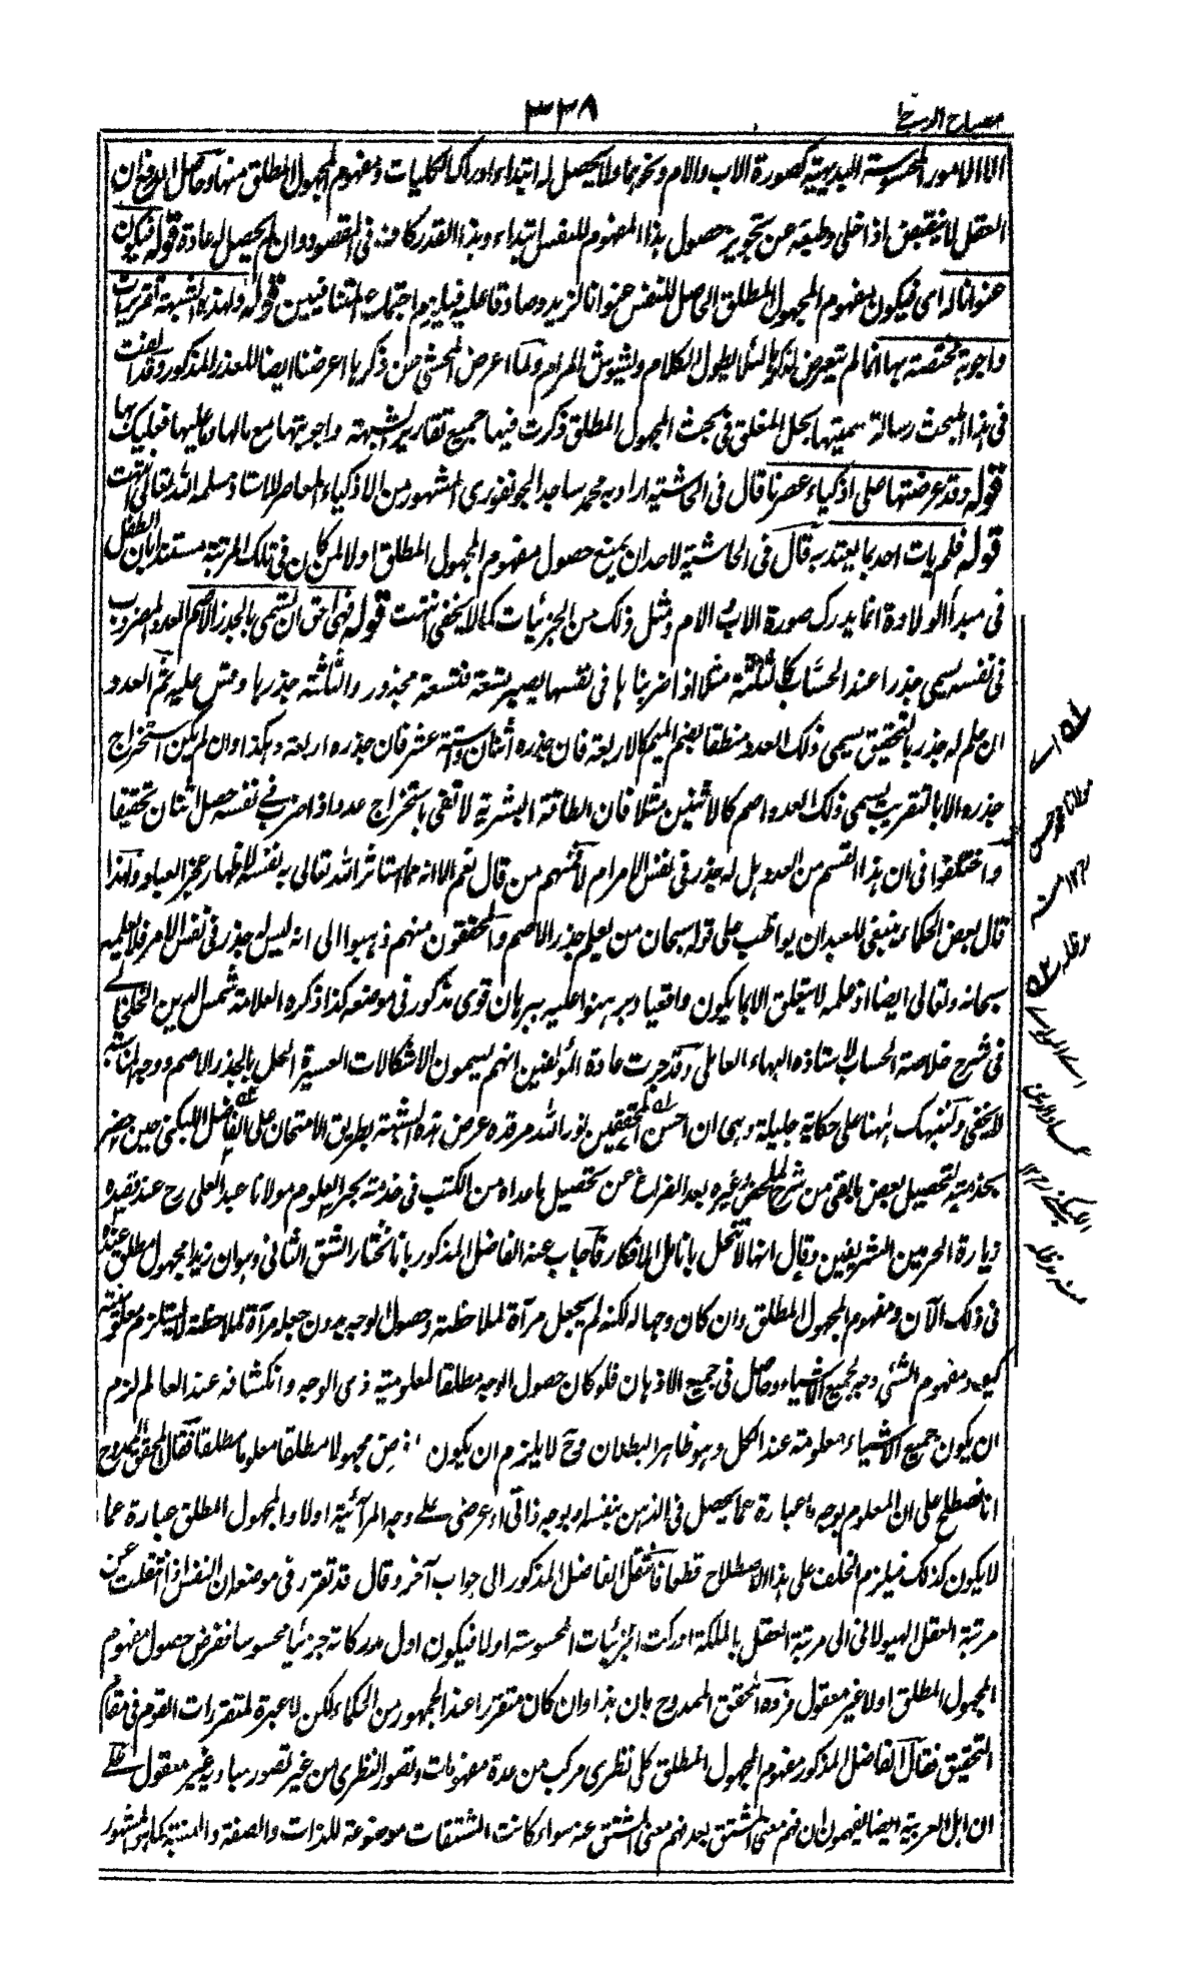 مصباح الدجى
٣٣٨
الا الامور المحسوسة البديهية كصورة الاب والام ونحوهما ولا يحصل له ابتداء ادراك الكليات ومفهوم المجهول المطلق منها وحاصل الدفع ان
العقل لا ينقبض اذا خلى وطبعه عن تجويز حصول هذا المفهوم للنفس ابتداء وهذا القدر كاف في المقصود وان لم يحصل له عادة قوله فيكون
عنوانا له اى فيكون مفهوم المجهول المطلق الحاصل للنفس عنوانا لزيد وصادقا عليه فيلزم اجتماع المتنافيين قوله ولهذه الشبهة تقريرات
واجوبة مختصة بها انما لم يتعرض لذكرها لئلا يطول الكلام ويشوش المرام ولما اعرض المحشى عن ذكرها اعرضنا ايضا للعذر المذكور وقد الفت
فى هذا المبحث رسالة سميتها بحل المغلق فى بحث المجهول المطلق ذكرت فيها جميع تقارير الشبهة واجوبتها مع مالها وما عليها فعليك بها
قوله وقد عرضتها على اذكياء عصرنا قال فى الحاشية اراد به محمد ساجد الجونفورى المشهور من الاذكياء المعاصر للاستاذ سلمه الله تعالى انتهت
قوله فلم يات احد بما يعتد به قال فى الحاشية لاحد ان يمنع حصول مفهوم المجهول المطلق اولا لمن كان فى تلك المرتبة مستندا بان الطفل
فى مبدأ الولادة انما يدرك صورة الاب والام ومثل ذلك من الجزئيات كما لا يخفى انتهت قوله فهى احق ان تسمى بالجذر الاصم العدد المضروب
فى نفسه يسمى جذرا عند الحساب كالثلثة مثلا اذا ضربناها فى نفسها يصير تسعة فتسعة مجذور والثلثة جذرها وقس عليه ثم العدد
ان علم له جذر بالتحقيق يسمى ذلك العدد منطقا بضم الميم كالاربعة فان جذره اثنان وستة عشر فان جذره اربعة وهكذا وان لم يكن استخراج
جذره الا بالتقريب يسمى ذلك العدد اصم كالاثنين مثلا فان الطاقة البشرية لا تفى باستخراج عدد اذا ضرب فى نفسه حصل اثنان تحقيقا
واختلفوا فى ان هذا القسم من العدد هل له جذر فى نفس الامر ام لا فمنهم من قال نعم الا انه مما استاثر الله تعالى به نفسه لاظهار عجز العباد ولهذا
قال بعض الحكماء ينبغى للعبد ان يواظب على قوله سبحان من يعلم جذر الاصم والمحققون منهم ذهبوا الى انه ليس له جذر فى نفس الامر فلا يعلمه
سبحانه وتعالى ايضا اذ علمه لا يتعلق الا بما يكون واقعيا وبرهنوا عليه ببرهان قوى مذكور فى موضعه كذا ذكره العلامة شمس الدين الخلخالى
فى شرح خلاصة الحساب لاستاذه البهاء العاملى وقد جرت عادة المؤلفين انهم يسمون الاشكالات العسيرة الحل بالجذر الاصم ووجه المناسبة
لا يخفى ولننبهك ههنا على حكاية جليلة وهى ان احسن المحققين نور الله مرقده عرض هذه الشبهة بطريق الامتحان على الفاضل اللبكنى حين حضر
بخدمته لتحصيل بعض ما بقى من شرح الملخص وغيره بعد الفراغ عن تحصيل ما عداه من الكتب فى خدمة بحر العلوم مولانا عبد العلى رح عند قصده
زيارة الحرمين الشريفين وقال انها لا تنحل بانامل الافكار فاجاب عنه الفاضل المذكور بانا نختار الشق الثانى وهو ان زيدا مجهول مطلق عنده
فى ذلك الآن ومفهوم المجهول المطلق وان كان وجها له لكنه لم يجعل مرآة لملاحظته وحصول الوجه بدون جعله مرآة لملاحظته لا يستلزم معلوميته
كيف ومفهوم الشئ وجه لجميع الاشياء وحاصل فى جميع الاذهان فلو كان حصول الوجه مطلقا لمعلومية ذى الوجه وانكشافه عند العالم لزم
ان يكون جميع الاشياء معلومة عند الكل وهو ظاهر البطلان وح لا يلزم ان يكون مجهولا مطلقا معلوما مطلقا فقال المحقق الممدوح
انا نصطلح على ان المعلوم بوجه ما عبارة عما يحصل فى الذهن بنفسه او بوجه ذاتى او عرضى على وجه المرآتية اولا والمجهول المطلق عبارة عما
لا يكون كذلك فيلزم الخلف على هذا الاصطلاح قطعا فانتقل الفاضل المذكور الى جواب آخر وقال قد تقرر فى موضعه ان النفس اذا انتقلت عن
مرتبة العقل الهيولانى الى مرتبة العقل بالملكة ادركت الجزئيات المحسوسة اولا فيكون اول مدركاته جزئيا محسوسا ففرض حصول مفهوم
المجهول المطلق اولا غير معقول فرده المحقق الممدوح بان هذا وان كان متقررا عند الجمهور من الحكماء لكن لا عبرة لمتقررات القوم فى مقام
التحقيق فقال الفاضل المذكور مفهوم المجهول المطلق كلى نظرى مركب من عدة مفهومات وتصور النظرى من غير تصور مباديه غير معقول على
ان اهل العربية ايضا يفهمون ان فهم معنى المشتق بعد فهم معنى المشتق عنه سواء كانت المشتقات موضوعة للذات والصفة والنسبة كما هو المشهور
ـه اى
مولانا محمد حسن
١٢ منه
مد ظله
اى المولوى
عماد الدين
اللبكنى ١٢
منه مد ظله